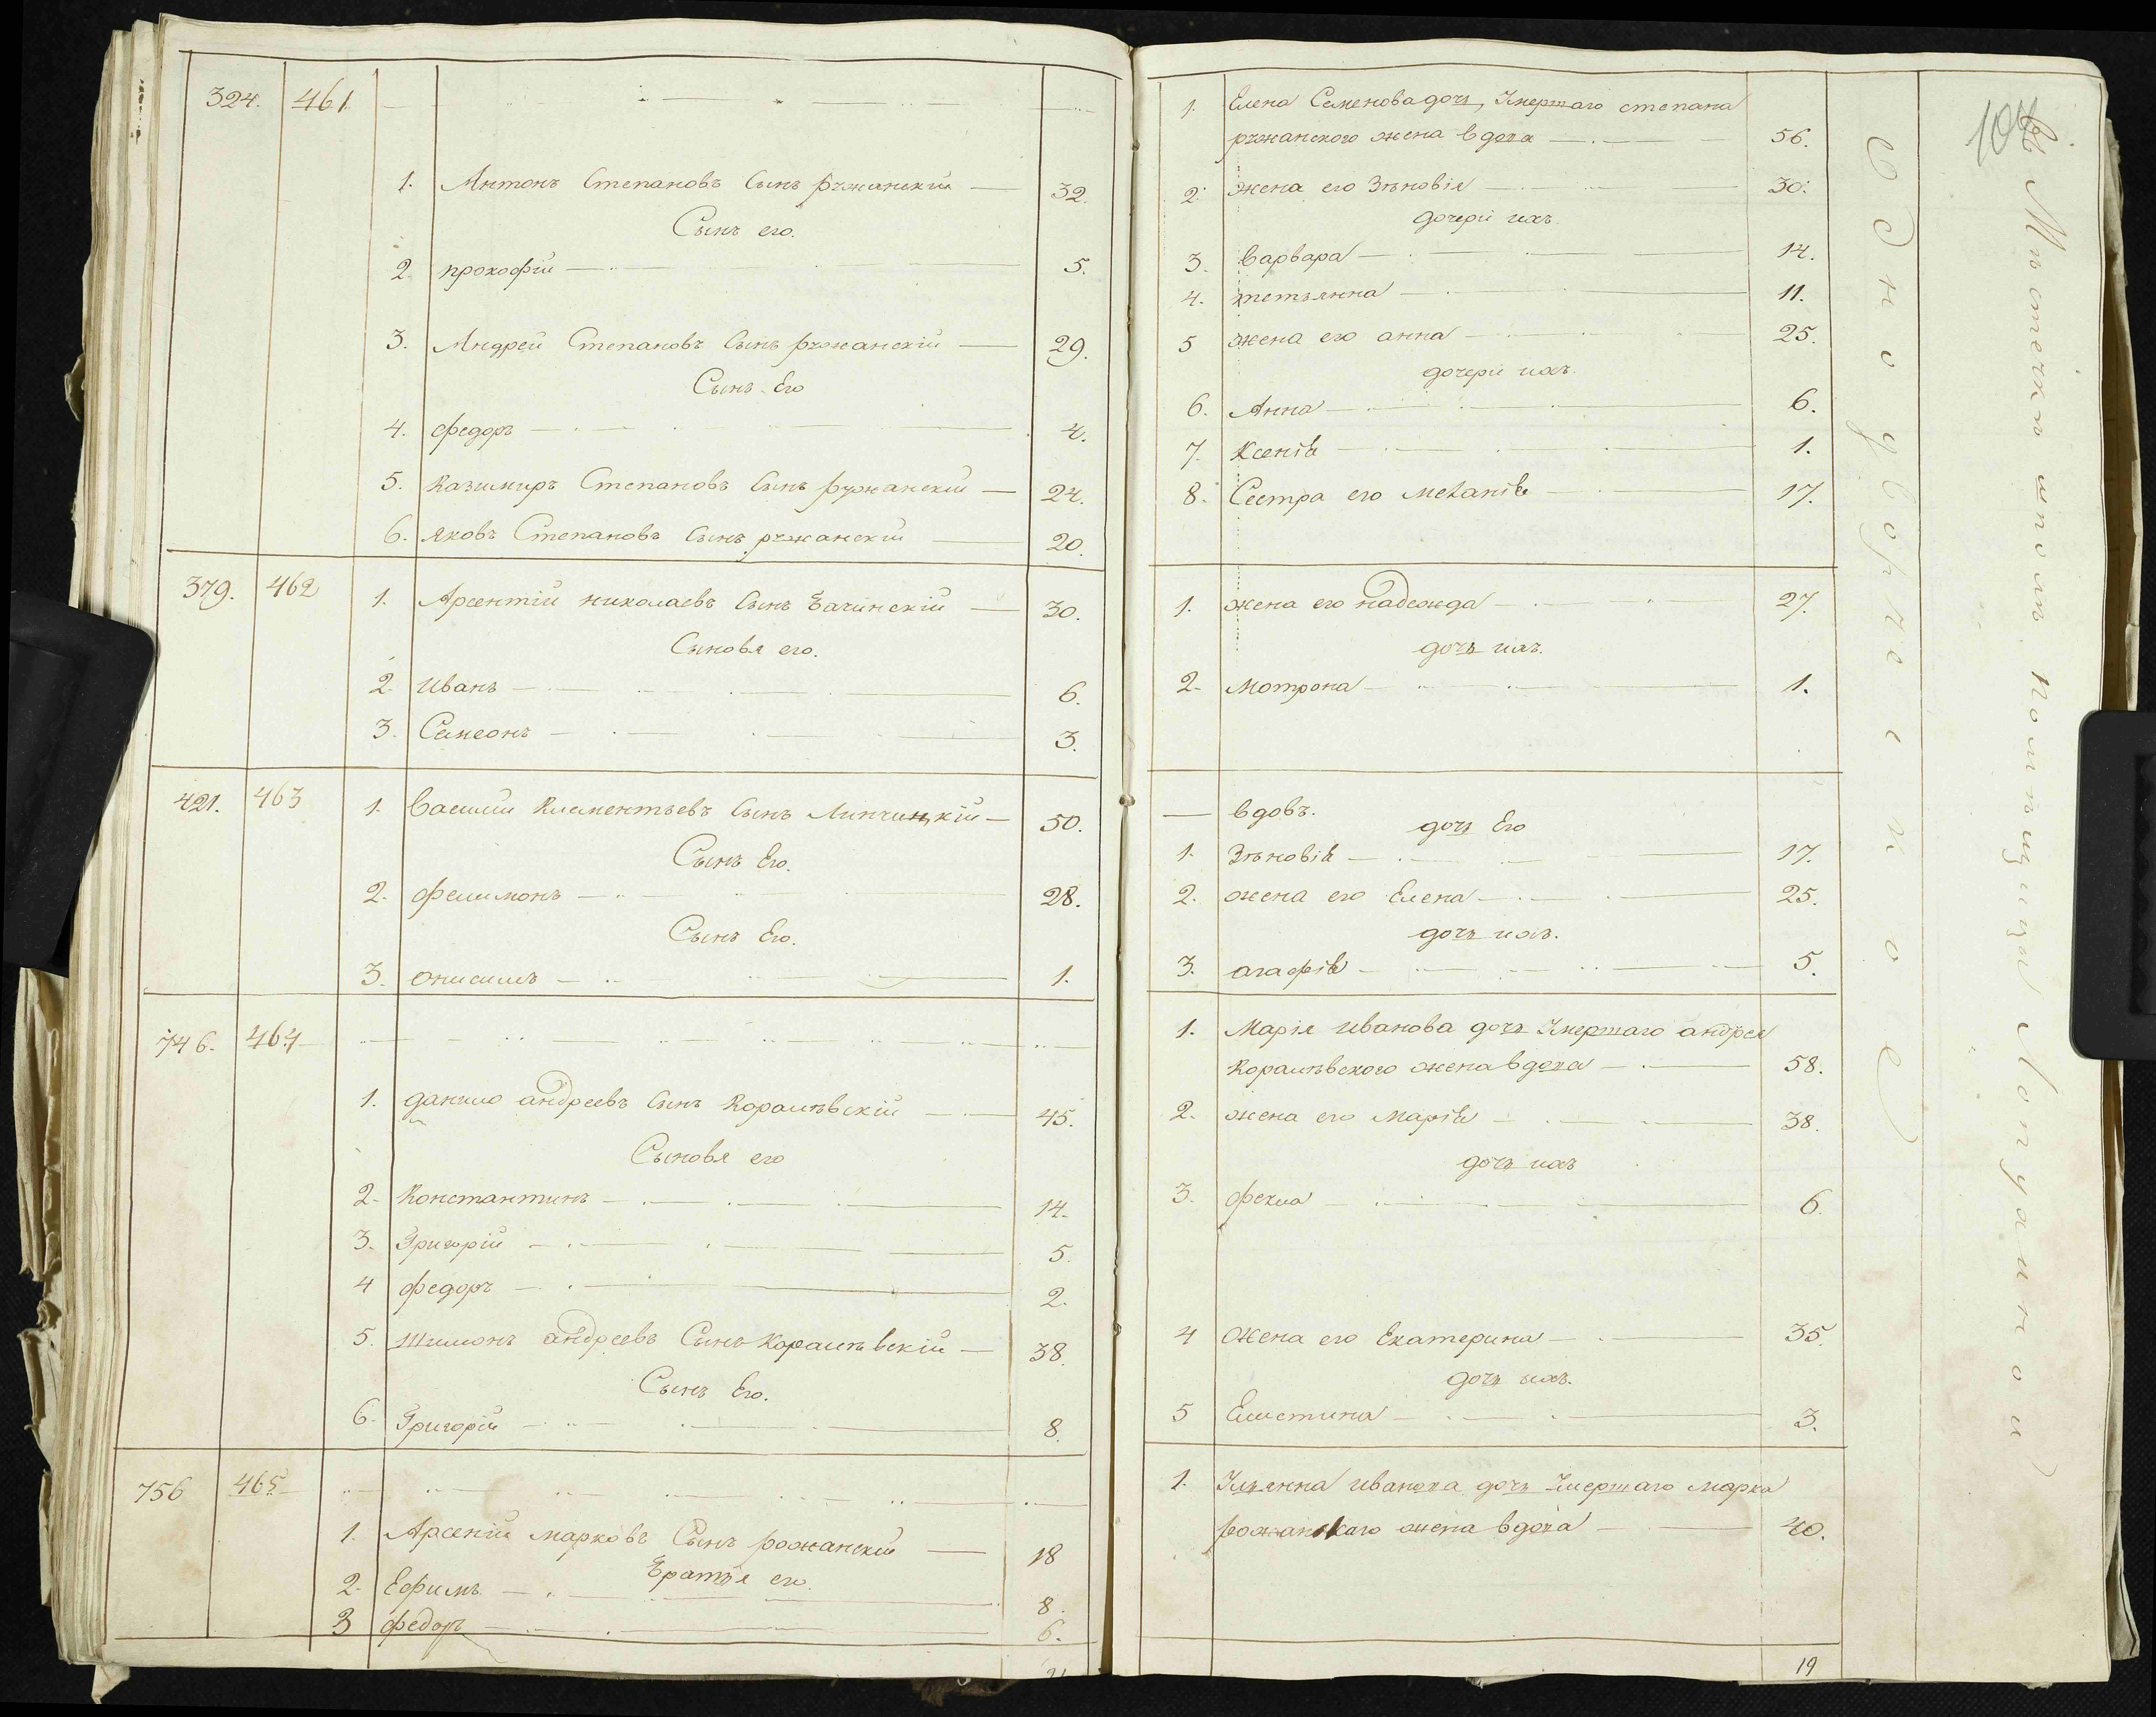 324. 461.
1. Антонъ Степановъ Сынъ ружанскій — 32.
Сынъ его.
2. прокофій — 5.
3. Андрей Степановъ Сынъ ружанскій — 29.
Сынъ Его
4. федоръ — 4.
5. Казимиръ Степановъ Сынъ ружанскій — 24.
6. яковъ Степановъ Сынъ ружанскій — 20.
379. 462 1. Арсентій николаевъ Сынъ Бачинскій — 30.
Сыновя его.
2. Иванъ — 6.
3. Симеонъ — 3.
421. 463 1. Василій Клементьевъ Сынъ Липчинкій — 50.
Сынъ Его.
2. филимонъ — 28.
Сынъ Его.
3. онисимъ — 1.
746. 464
1. данило андреевъ Сынъ Коралѣвскій — 45.
Сыновя его
2. Константинъ — 14.
3. Григорій — 5.
4 федоръ — 2.
5. Шимонъ андреевъ Сынъ Коралѣвскій — 38.
Сынъ Его.
6. Григорій — 8.
756 465
1. Арсеній марковъ Сынъ рожанскій — 18
Братья его.
2. Ефимъ — 8.
3 федоръ — 6.
104
1. Елена Семенова дочь, Умершаго степана
ружанского жена вдова — 56.
2. жена его Зѣновія — 30.
дочери ихъ.
3. Варвара — 14.
4. тетьянна — 11.
5 жена его анна — 25.
дочери ихъ.
6. Анна — 6.
7. Ксенія — 1.
8. Сестра его Меланія — 17.
1. жена его надежда — 27.
дочь ихъ.
2. Мотрона — 1.
— вдовъ.
дочь Его
1. Зѣновія — 17.
2. жена его Елена — 25.
дочь ихъ.
3. агафія — 5.
1. Марія иванова дочь Умершаго андрея
Коралѣвского жена вдова — 58.
2. жена его Марія — 38.
дочь ихъ
3. фекла — 6.
4 жена его Екатерина — 35.
дочь ихъ.
5 Елистина — 3.
1. Ульянна иванова дочь Умершаго марка
рожанскаго жена вдова — 40.
19
Однодворческое
въ Мѣстечкѣ шполѣ помѣщицы Лопухиной